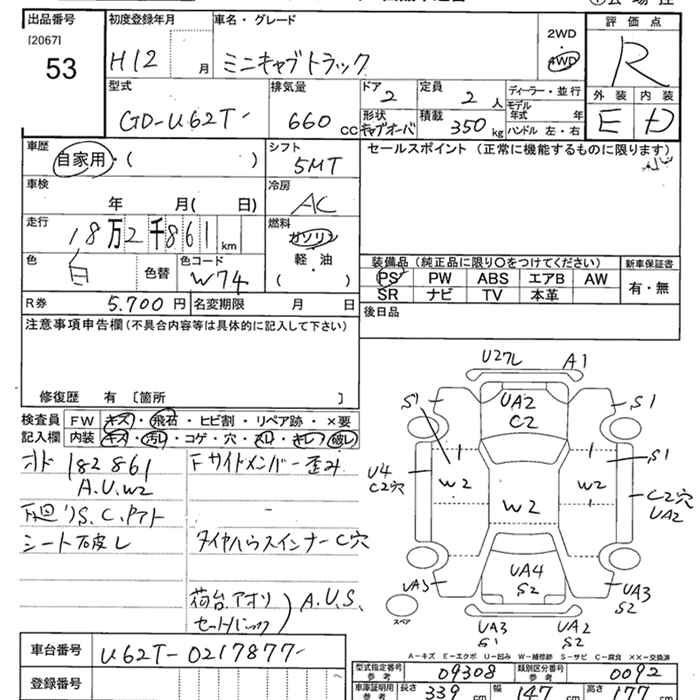 出品番号 初度登録年月 車名・グレード 評価点
[2067]
53 H12 月 ミニキャブトラック 2WD・4WD R
型式 排気量 ドア 定員 ディーラー・並行 外装 内装
GD-U62T- 660 CC 2 2人 モデル年式 年 E D
形状 積載 ハンドル 左・右
キャブオーバ 350kg
車歴 シフト セールスポイント(正常に機能するものに限ります)
自家用・( ) 5MT
車検 冷房
年 月( 日) AC
走行 燃料
18万2千861km ガソリン
軽・油
( )
色 色コード 装備品(純正品に限り○をつけてください) 新車保証書
白 色替 W74 PS PW ABS エアB AW 有・無
SR ナビ TV 本革
R券 5.700円 名変期限 月 日 後日品
注意事項申告欄(不具合内容等は具体的に記入して下さい)
修復歴 有 〔箇所 〕
検査員 FW キズ・飛石・ヒビ割・リペア跡・×要
記入欄 内装 キズ・汚レ・コゲ・穴・スレ・キレ・破レ
オド 182861 Fサイドメンバー歪み
A.U.W2
下廻りS.C.アト
シート破レ タイヤハウスインナーC穴
荷台.アオリ A.U.S.
セットバック
U27L A1
S1 UA2 S1
C2
S1
U4 W2 W2 W2 C2穴
C2穴 UA2
UA3 UA4 UA3
S2 S2
スペア UA3 UA2
S1 S2
A-キズ E-エクボ U-凹み W-補修跡 S-サビ C-腐食 ××-交換済
車台番号 U62T-0217877- 型式指定番号 参考 09308 類別区分番号 参考 0092
登録番号 車庫証明用 参考 長さ 339cm 幅 147cm 高さ 177cm